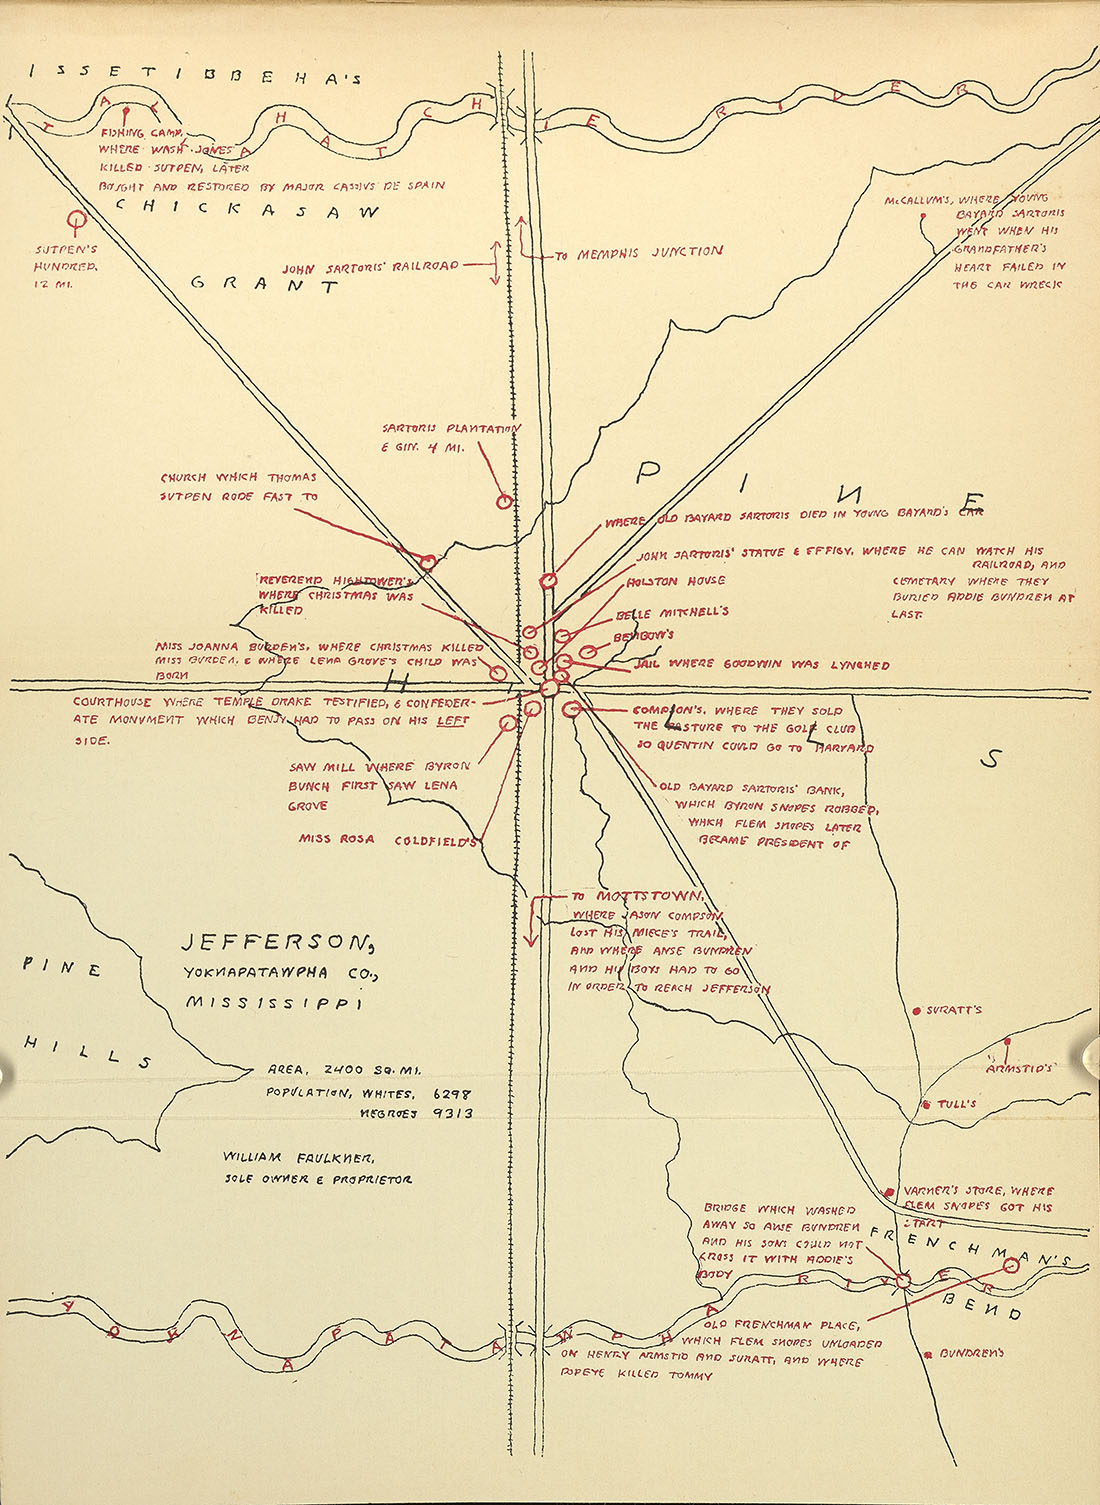 ISSETIBBEHA'S
TALLAHATCHIE RIVER
FISHING CAMP,
WHERE WASH JONES
KILLED SUTPEN, LATER
BOUGHT AND RESTORED BY MAJOR CASSIUS DE SPAIN
CHICKASAW
GRANT
SUTPEN'S
HUNDRED,
12 MI.
JOHN SARTORIS' RAILROAD
TO MEMPHIS JUNCTION
McCALLUM'S, WHERE YOUNG
BAYARD SARTORIS
WENT WHEN HIS
GRANDFATHER'S
HEART FAILED IN
THE CAR WRECK
SARTORIS PLANTATION
& GIN. 4 MI.
CHURCH WHICH THOMAS
SUTPEN RODE FAST TO
PINE
HILLS
WHERE OLD BAYARD SARTORIS DIED IN YOUNG BAYARD'S CAR
JOHN SARTORIS' STATUE & EFFIGY, WHERE HE CAN WATCH HIS
RAILROAD, AND
CEMETARY WHERE THEY
BURIED ADDIE BUNDREN AT
LAST.
REVEREND HIGHTOWER'S,
WHERE CHRISTMAS WAS
KILLED
HOLSTON HOUSE
BELLE MITCHELL'S
BENBOW'S
MISS JOANNA BURDEN'S, WHERE CHRISTMAS KILLED
MISS BURDEN, & WHERE LENA GROVE'S CHILD WAS
BORN
JAIL WHERE GOODWIN WAS LYNCHED
COURTHOUSE WHERE TEMPLE DRAKE TESTIFIED, & CONFEDER-
ATE MONUMENT WHICH BENJY HAD TO PASS ON HIS LEFT
SIDE.
COMPSON'S, WHERE THEY SOLD
THE PASTURE TO THE GOLF CLUB
SO QUENTIN COULD GO TO HARVARD
SAW MILL WHERE BYRON
BUNCH FIRST SAW LENA
GROVE
OLD BAYARD SARTORIS' BANK,
WHICH BYRON SNOPES ROBBED,
WHICH FLEM SNOPES LATER
BECAME PRESIDENT OF
MISS ROSA COLDFIELD'S
TO MOTTSTOWN,
WHERE JASON COMPSON
LOST HIS NIECE'S TRAIL,
AND WHERE ANSE BUNDREN
AND HIS BOYS HAD TO GO
IN ORDER TO REACH JEFFERSON
JEFFERSON,
YOKNAPATAWPHA CO.,
MISSISSIPPI
PINE
HILLS
AREA, 2400 SQ. MI.
POPULATION, WHITES, 6298
NEGROES 9313
WILLIAM FAULKNER,
SOLE OWNER & PROPRIETOR
SURATT'S
ARMSTID'S
TULL'S
VARNER'S STORE, WHERE
FLEM SNOPES GOT HIS
START
BRIDGE WHICH WASHED
AWAY SO ANSE BUNDREN
AND HIS SONS COULD NOT
CROSS IT WITH ADDIE'S
BODY
FRENCHMAN'S
BEND
YOKNAPATAWPHA RIVER
OLD FRENCHMAN PLACE,
WHICH FLEM SNOPES UNLOADED
ON HENRY ARMSTID AND SURATT, AND WHERE
POPEYE KILLED TOMMY
BUNDREN'S